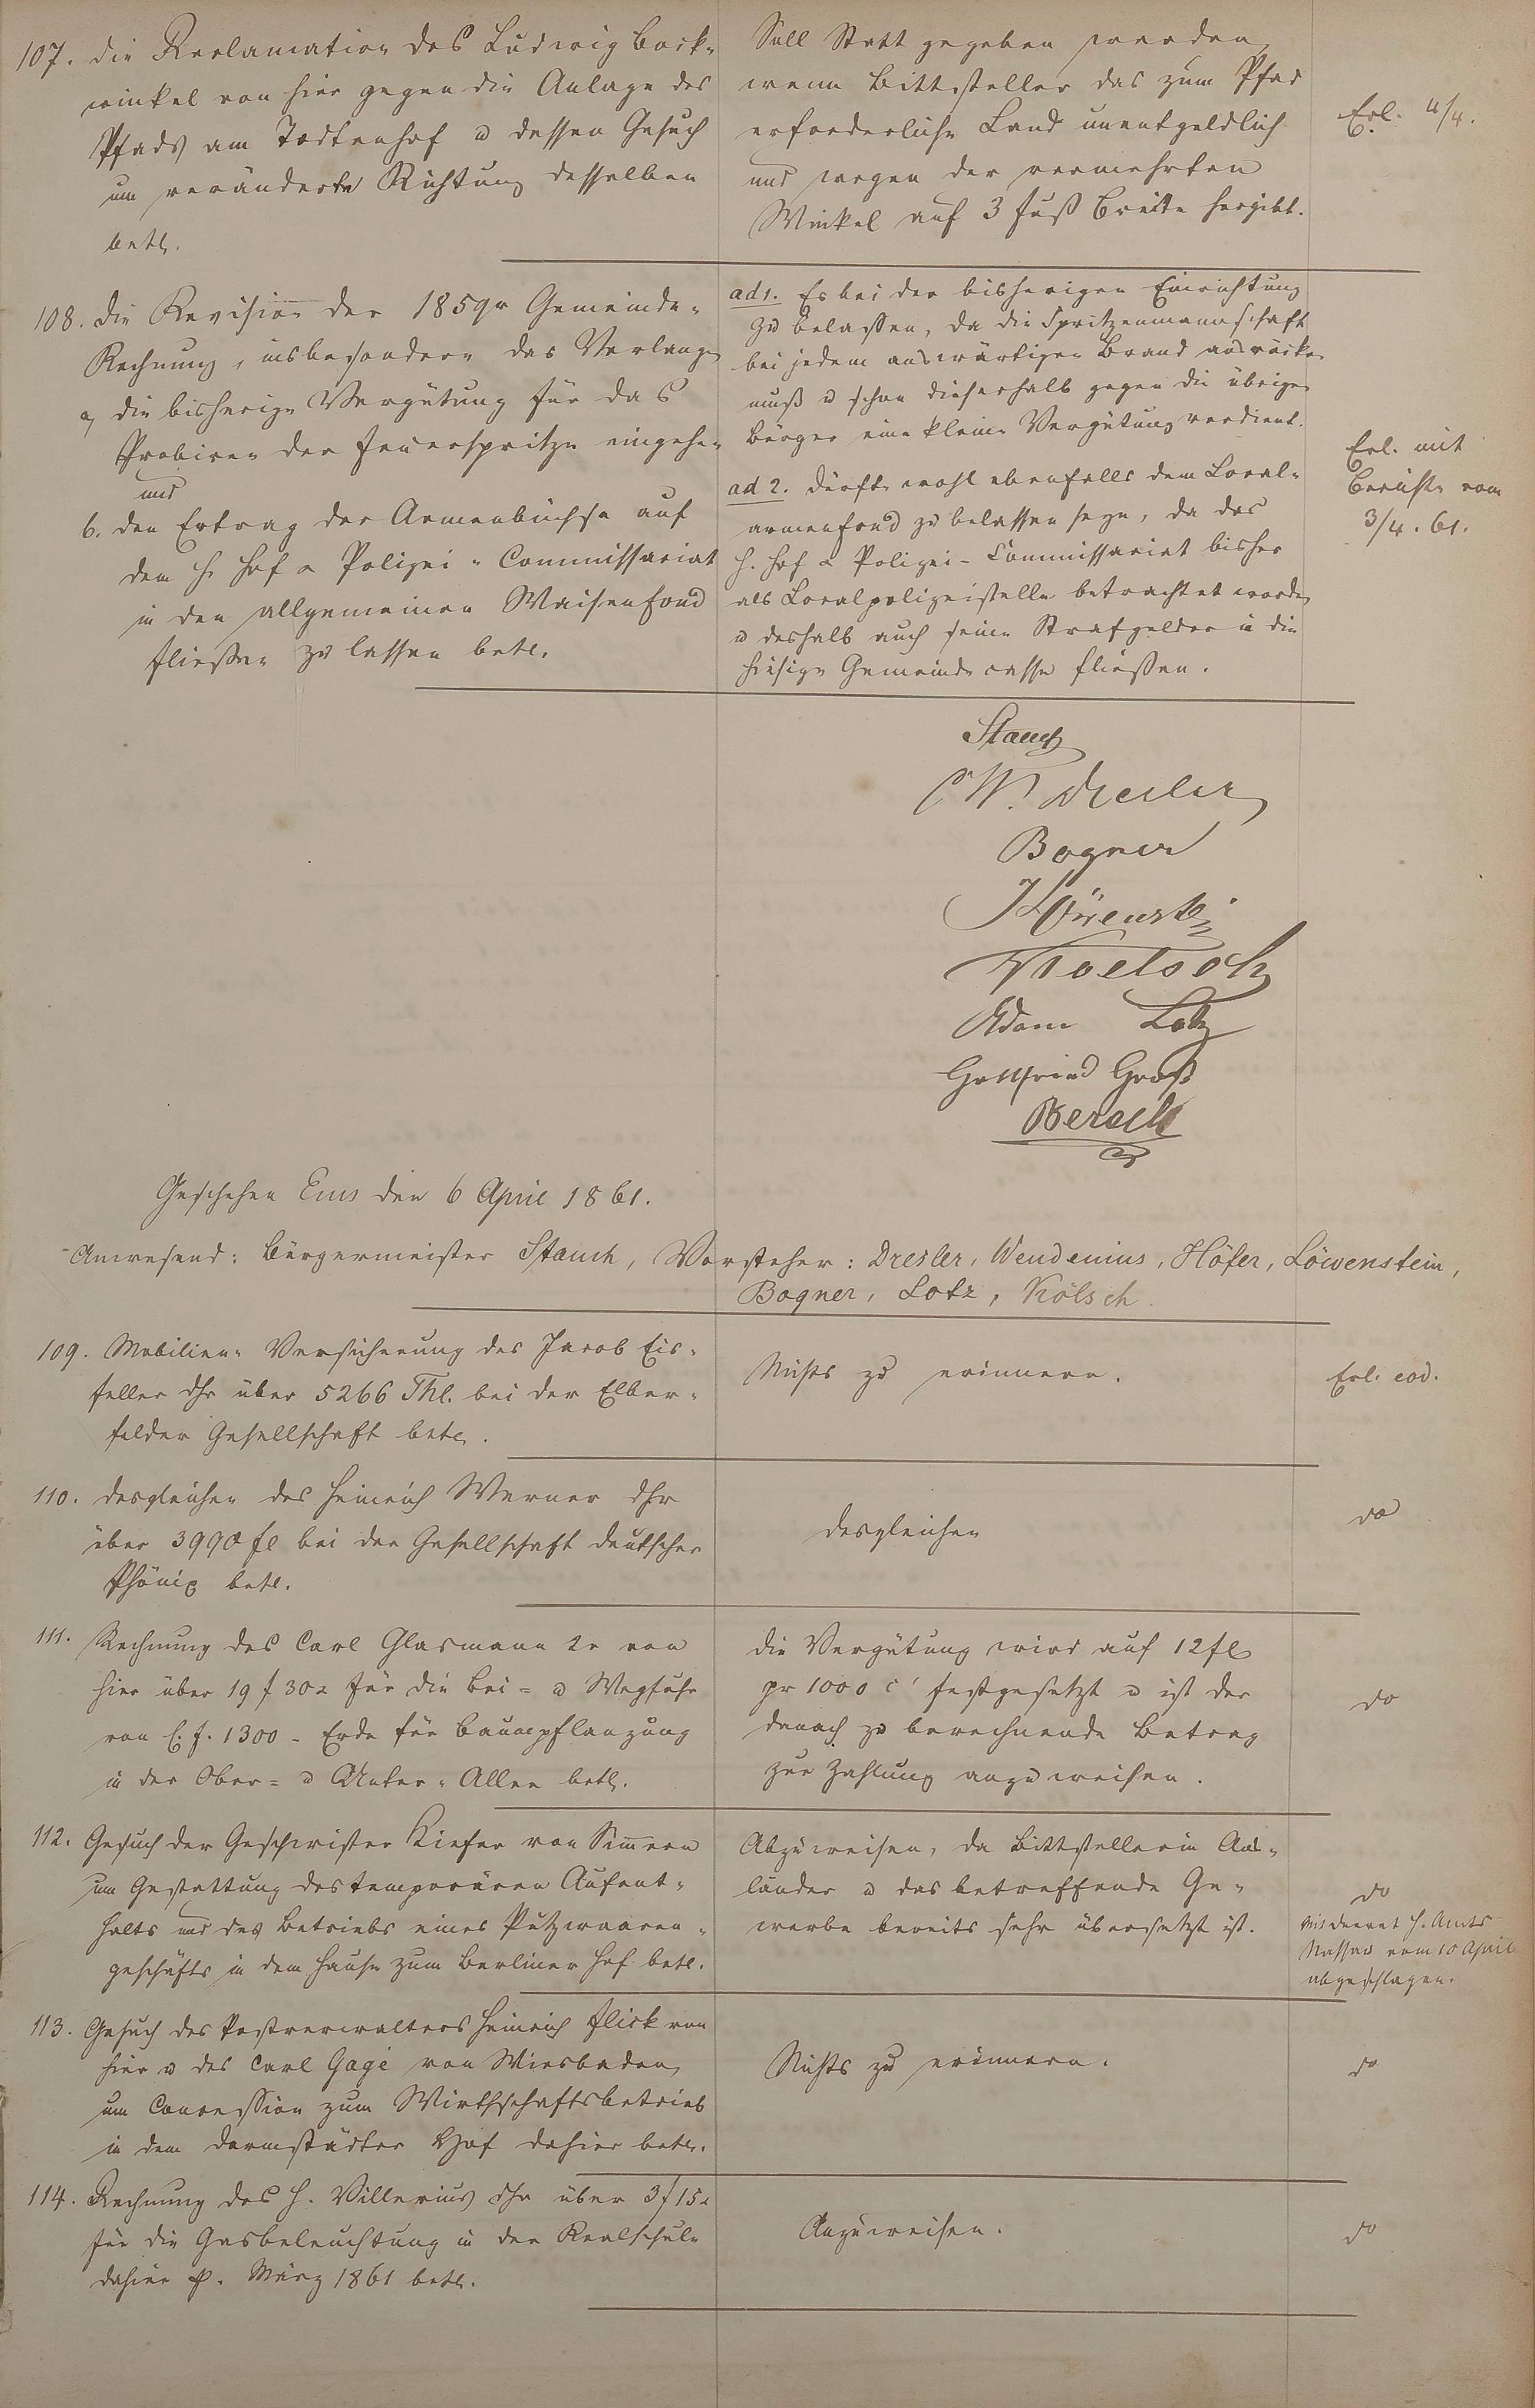 107. die Reclamation des Ludwig Bock-
winkel von hier gegen die Anlage des
Pfads am Todtenhof u dessen Gesuch
um veränderte Richtung desselben
betr.
Soll Statt gegeben werden,
wenn Bittsteller das zum Pfad
erforderliche Land unentgeldlich
und wegen der vermehrten
Winkel auf 3 Fuß Breite hergibt.
Erl. 4/4.
108. die Revision der 1859r Gemeinde-
Rechnung, insbesondere das Verlangen
a, die bisherige Vergütung für das
Probiren der Feuerspritze eingehen
und
b. den Ertrag der Armenbüchse auf
dem H. Hof- Polizei-Commissariat
in den allgemeinen Waisenfond
fließen zu lassen betr.
ad 1. Es bei der bisherigen Einrichtung
zu belassen, da die Spritzenmannschaft
bei jedem auswärtigen Brand ausrücken
muß u schon dieserhalb gegen die übrigen
Bürger eine kleine Vergütung verdient.
ad 2. dürfte wohl ebenfalls dem Local-
armenfond zu belassen seyn, da das
H. Hof- Polizei-Commissariat bisher
als Localpolizeistelle betrachtet worden
u deshalb auch seine Strafgelder in die
hiesige Gemeindecasse fließen.
Erl. mit
Bericht vom
3/4. 61.
Stauch
C W. Dresler
Bogner
J Löwenstein
Koelsch
Adam Lotz
Gottfried Groß
Bersch
Geschehen Ems den 6 April 1861.
Anwesend: Bürgermeister Stauch, Vorsteher: Dresler, Wendenius, Höfer, Löwenstein,
Bogner, Lotz, Kölsch.
109. Mobilien-Versicherung des Jacob Eis-
feller dhr über 5266 Thl. bei der Elber-
felder Gesellschaft betr.
Nichts zu erinnern.
Erl. eod.
110. desgleichen des Heinrich Werner dhr
über 3990 fl bei der Gesellschaft deutscher
Phönix betr.
desgleichen
do
111. Rechnung des Carl Glasmann 2r von
hier über 19 f 30 x für die Bei- u Wegfuhr
von C. f. 1300 - Erde für Baumpflanzung
in der Ober- u Unter-Allee betr.
die Vergütung wird auf 12 fl
pr 1000 c' festgesetzt u ist der
danach zu berechnende Betrag
zur Zahlung anzuweisen.
do
112. Gesuch der Geschwister Kiefer von Simmern
um Gestattung des temporären Aufent-
halts und des Betriebs eines Putzwaaren-
geschäfts in dem Hause zum Berliner Hof betr.
Abzuweisen, da Bittstellerin Aus-
länder u das betreffende Ge-
werbe bereits sehr übersetzt ist.
do
Mit Decret H. Amts
Nassau vom 10 April
abgeschlagen.
113. Gesuch des Postverwalters Heinrich Flick von
hier u des Carl Gagé von Wiesbaden
um Concession zum Wirthschaftsbetrieb
in dem Darmstädter Hof dahier betr.
Nichts zu erinnern.
do
114. Rechnung des H. Villerius dhr über 3 f 15 x
für die Gasbeleuchtung in der Realschule
dahier p. März 1861 betr.
Anzuweisen.
do